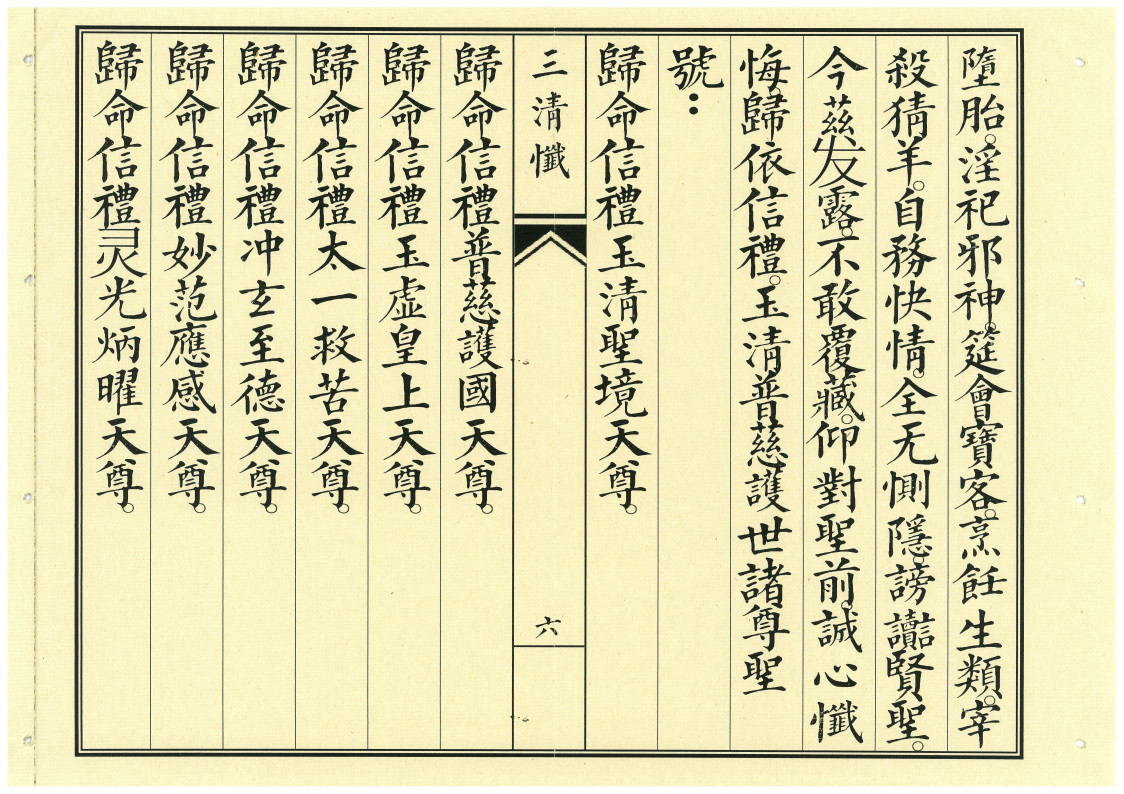 墮胎。淫祀邪神。筵會寶客。烹飪生類。宰
殺猜羊。自務快情。全无惻隱。謗讟賢聖。
今慈发露。不敢覆藏。仰對聖前。誠心懺
悔。歸依信禮。玉清普慈護世諸尊聖
號：
歸命信禮玉清聖境天尊。
三清懺
六
歸命信禮普慈護國天尊。
歸命信禮玉虛皇上天尊。
歸命信禮太一救苦天尊。
歸命信禮冲玄至德天尊。
歸命信禮妙范應感天尊。
歸命信禮灵光炳曜天尊。